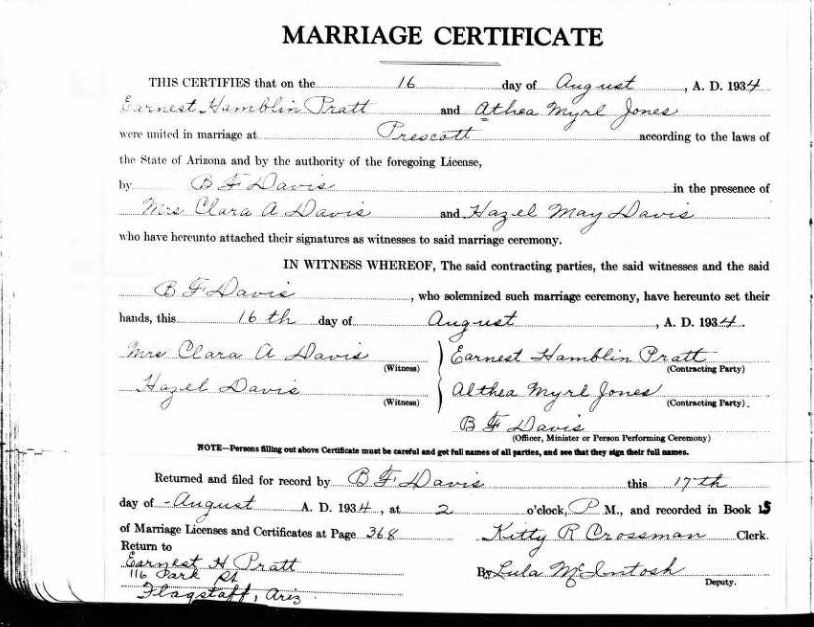 MARRIAGE CERTIFICATE
THIS CERTIFIES that on the 16 day of August, A. D. 1934
Earnest Hamblin Pratt and Athea Myrl Jones
were united in marriage at Prescott according to the laws of
the State of Arizona and by the authority of the foregoing License,
by B F Davis in the presence of
Mrs Clara A Davis and Hazel May Davis
who have hereunto attached their signatures as witnesses to said marriage ceremony.
IN WITNESS WHEREOF, The said contracting parties, the said witnesses and the said
B F Davis, who solemnized such marriage ceremony, have hereunto set their
hands, this 16th day of August, A. D. 1934.
Mrs Clara A Davis Earnest Hamblin Pratt
(Witness) (Contracting Party)
Hazel Davis Althea Myrl Jones
(Witness) (Contracting Party).
B F Davis
(Officer, Minister or Person Performing Ceremony)
NOTE—Persons filling out above Certificate must be careful and get full names of all parties, and see that they sign their full names.
Returned and filed for record by B F Davis this 17th
day of August A. D. 1934, at 2 o'clock, P M., and recorded in Book 15
of Marriage Licenses and Certificates at Page 368 Kitty R Crossman Clerk.
Return to
Earnest H Pratt
116 Park St By Lula McIntosh
Flagstaff, Ariz Deputy.